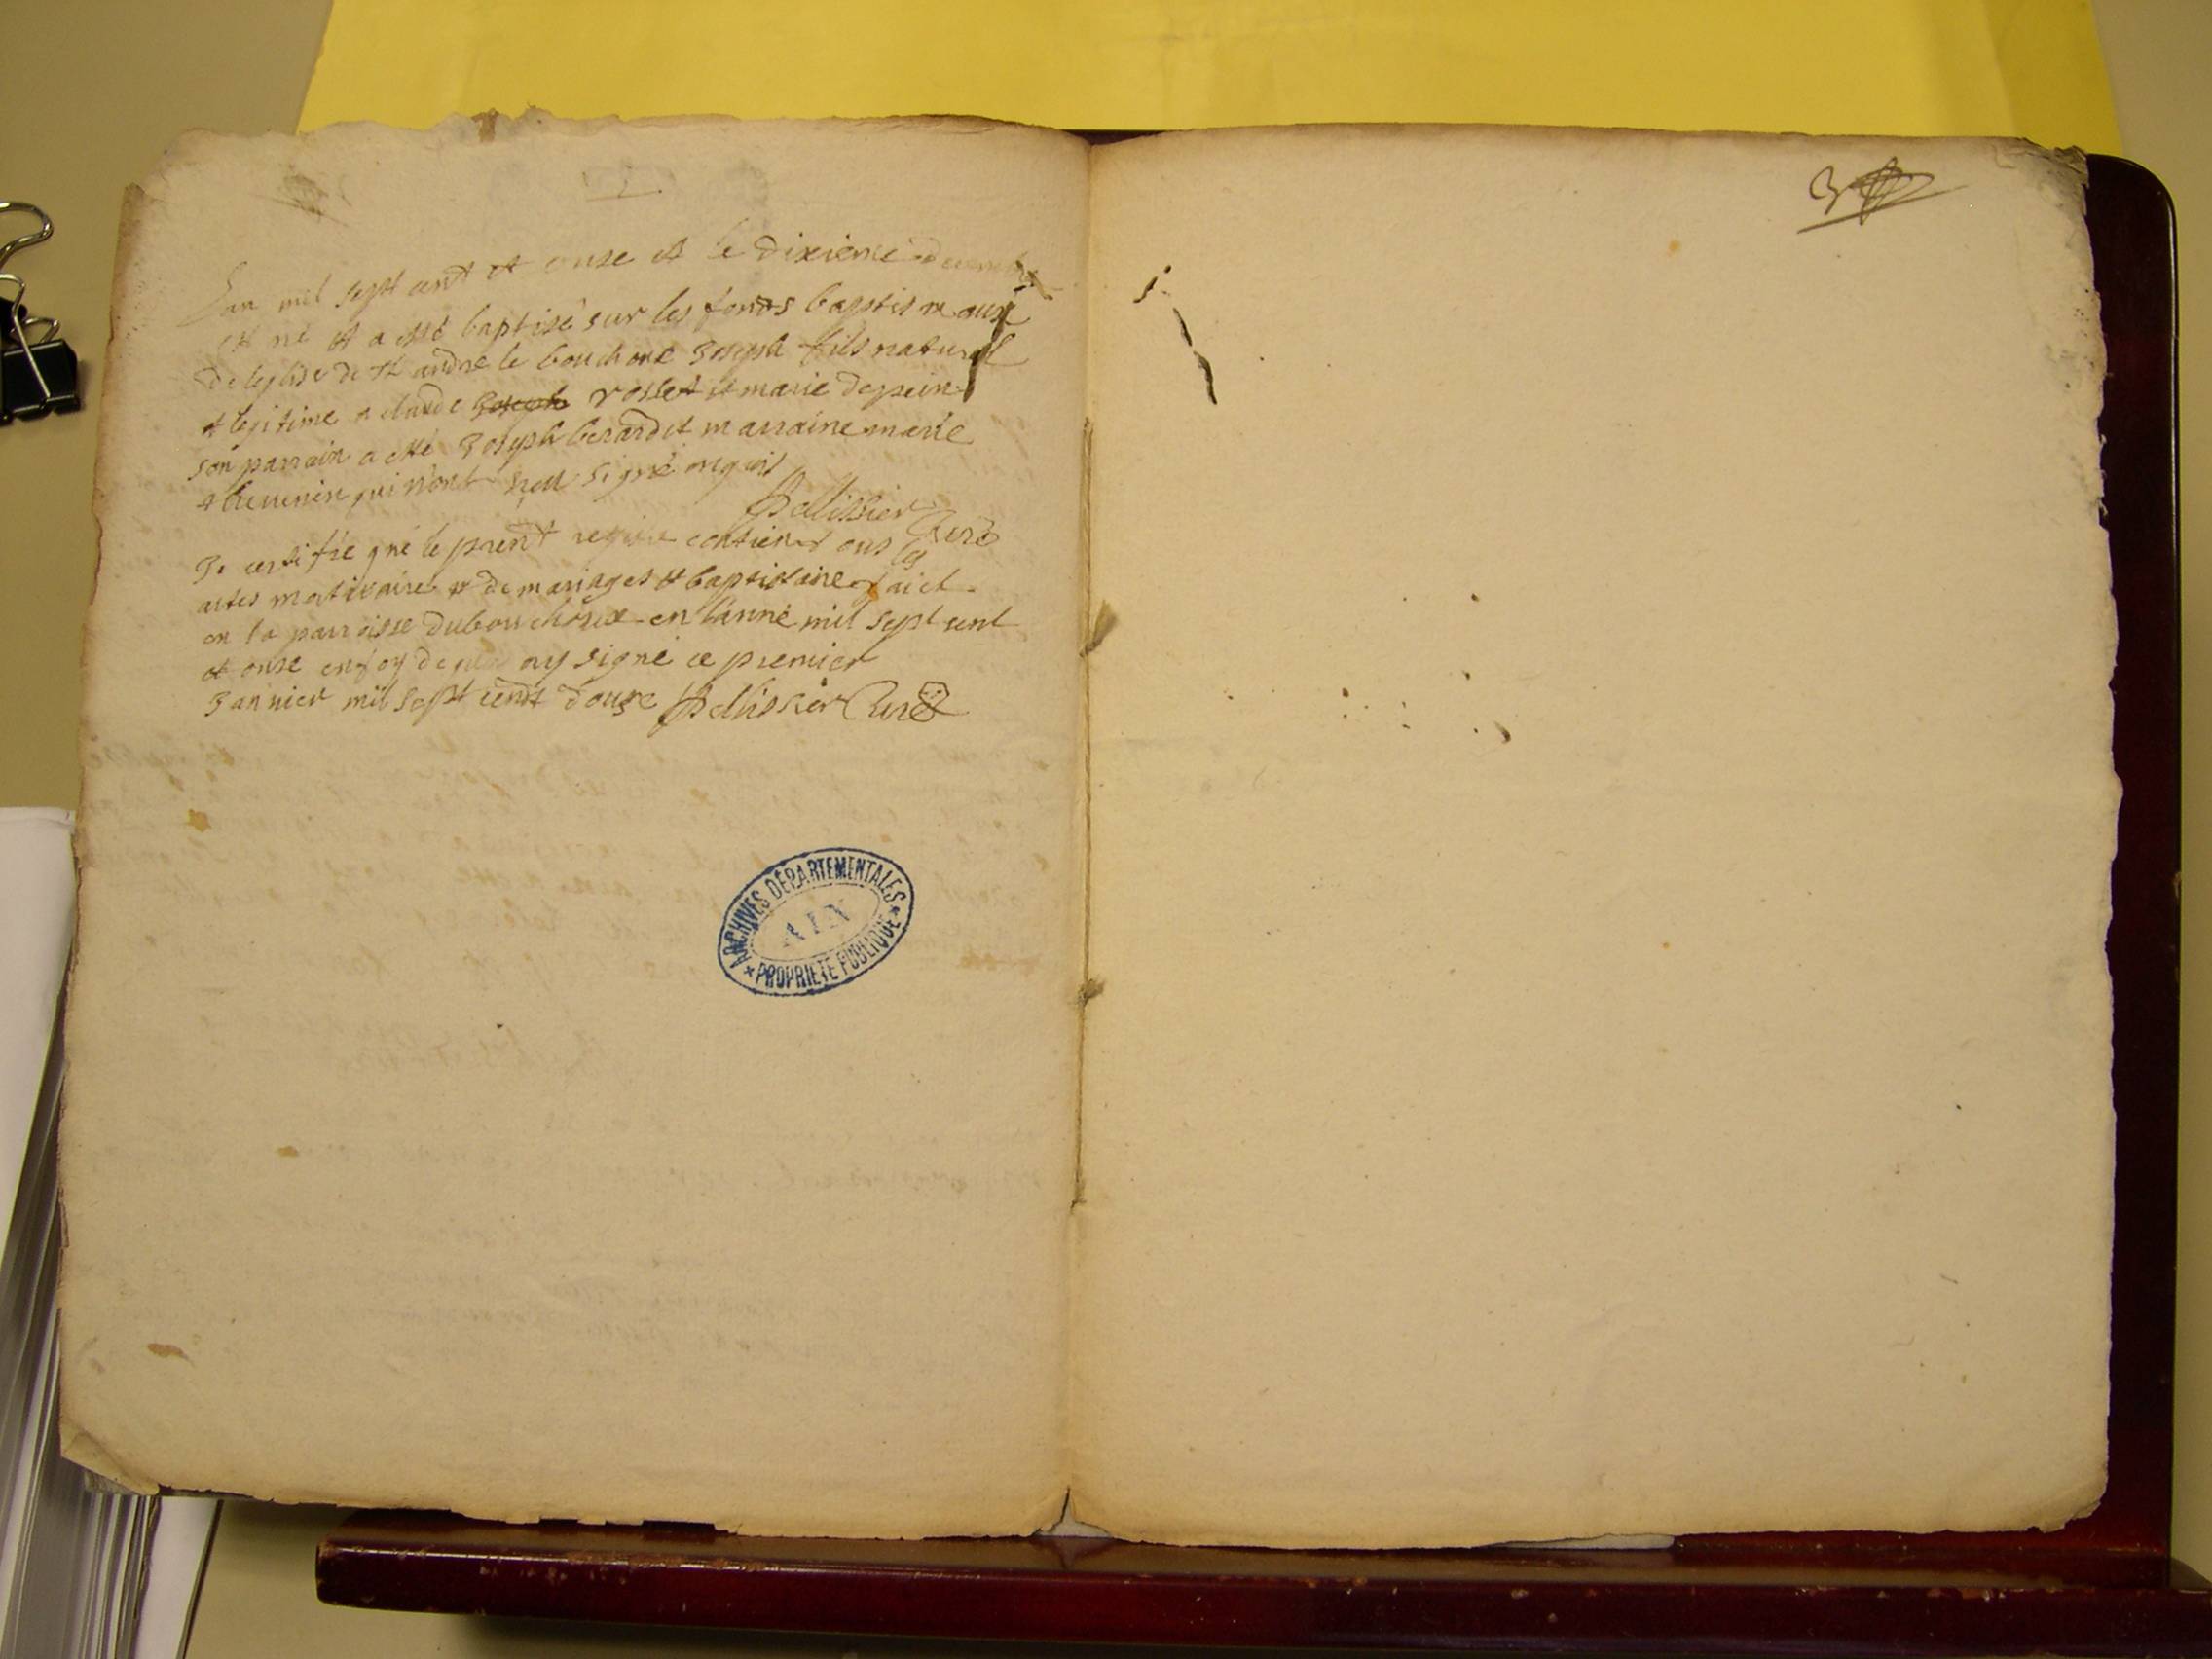 Lan mil sept cent et onse et le dixieme decembre
est né et a esté baptisé sur les fonds baptismaux
de leglise de st andre le bouchoux Joseph fils naturel
et legitime a claude Joseph rosset et marie depein
son parrain a esté Joseph berardet marraine marie
thevenin qui n'ont sceu signé enquis
Pellissier Curé
Je certifie que le prent registre contient tous les
actes mortuaire et de mariages et baptistaire faict
en la parroisse dubouchoux en l'anné mil sept cent
et onse en foy de quoy ay signé ce premier
Janvier mil sept cent douze Pellissier Curé
ARCHIVES DÉPARTEMENTALES
AIN
PROPRIÉTÉ PUBLIQUE
3